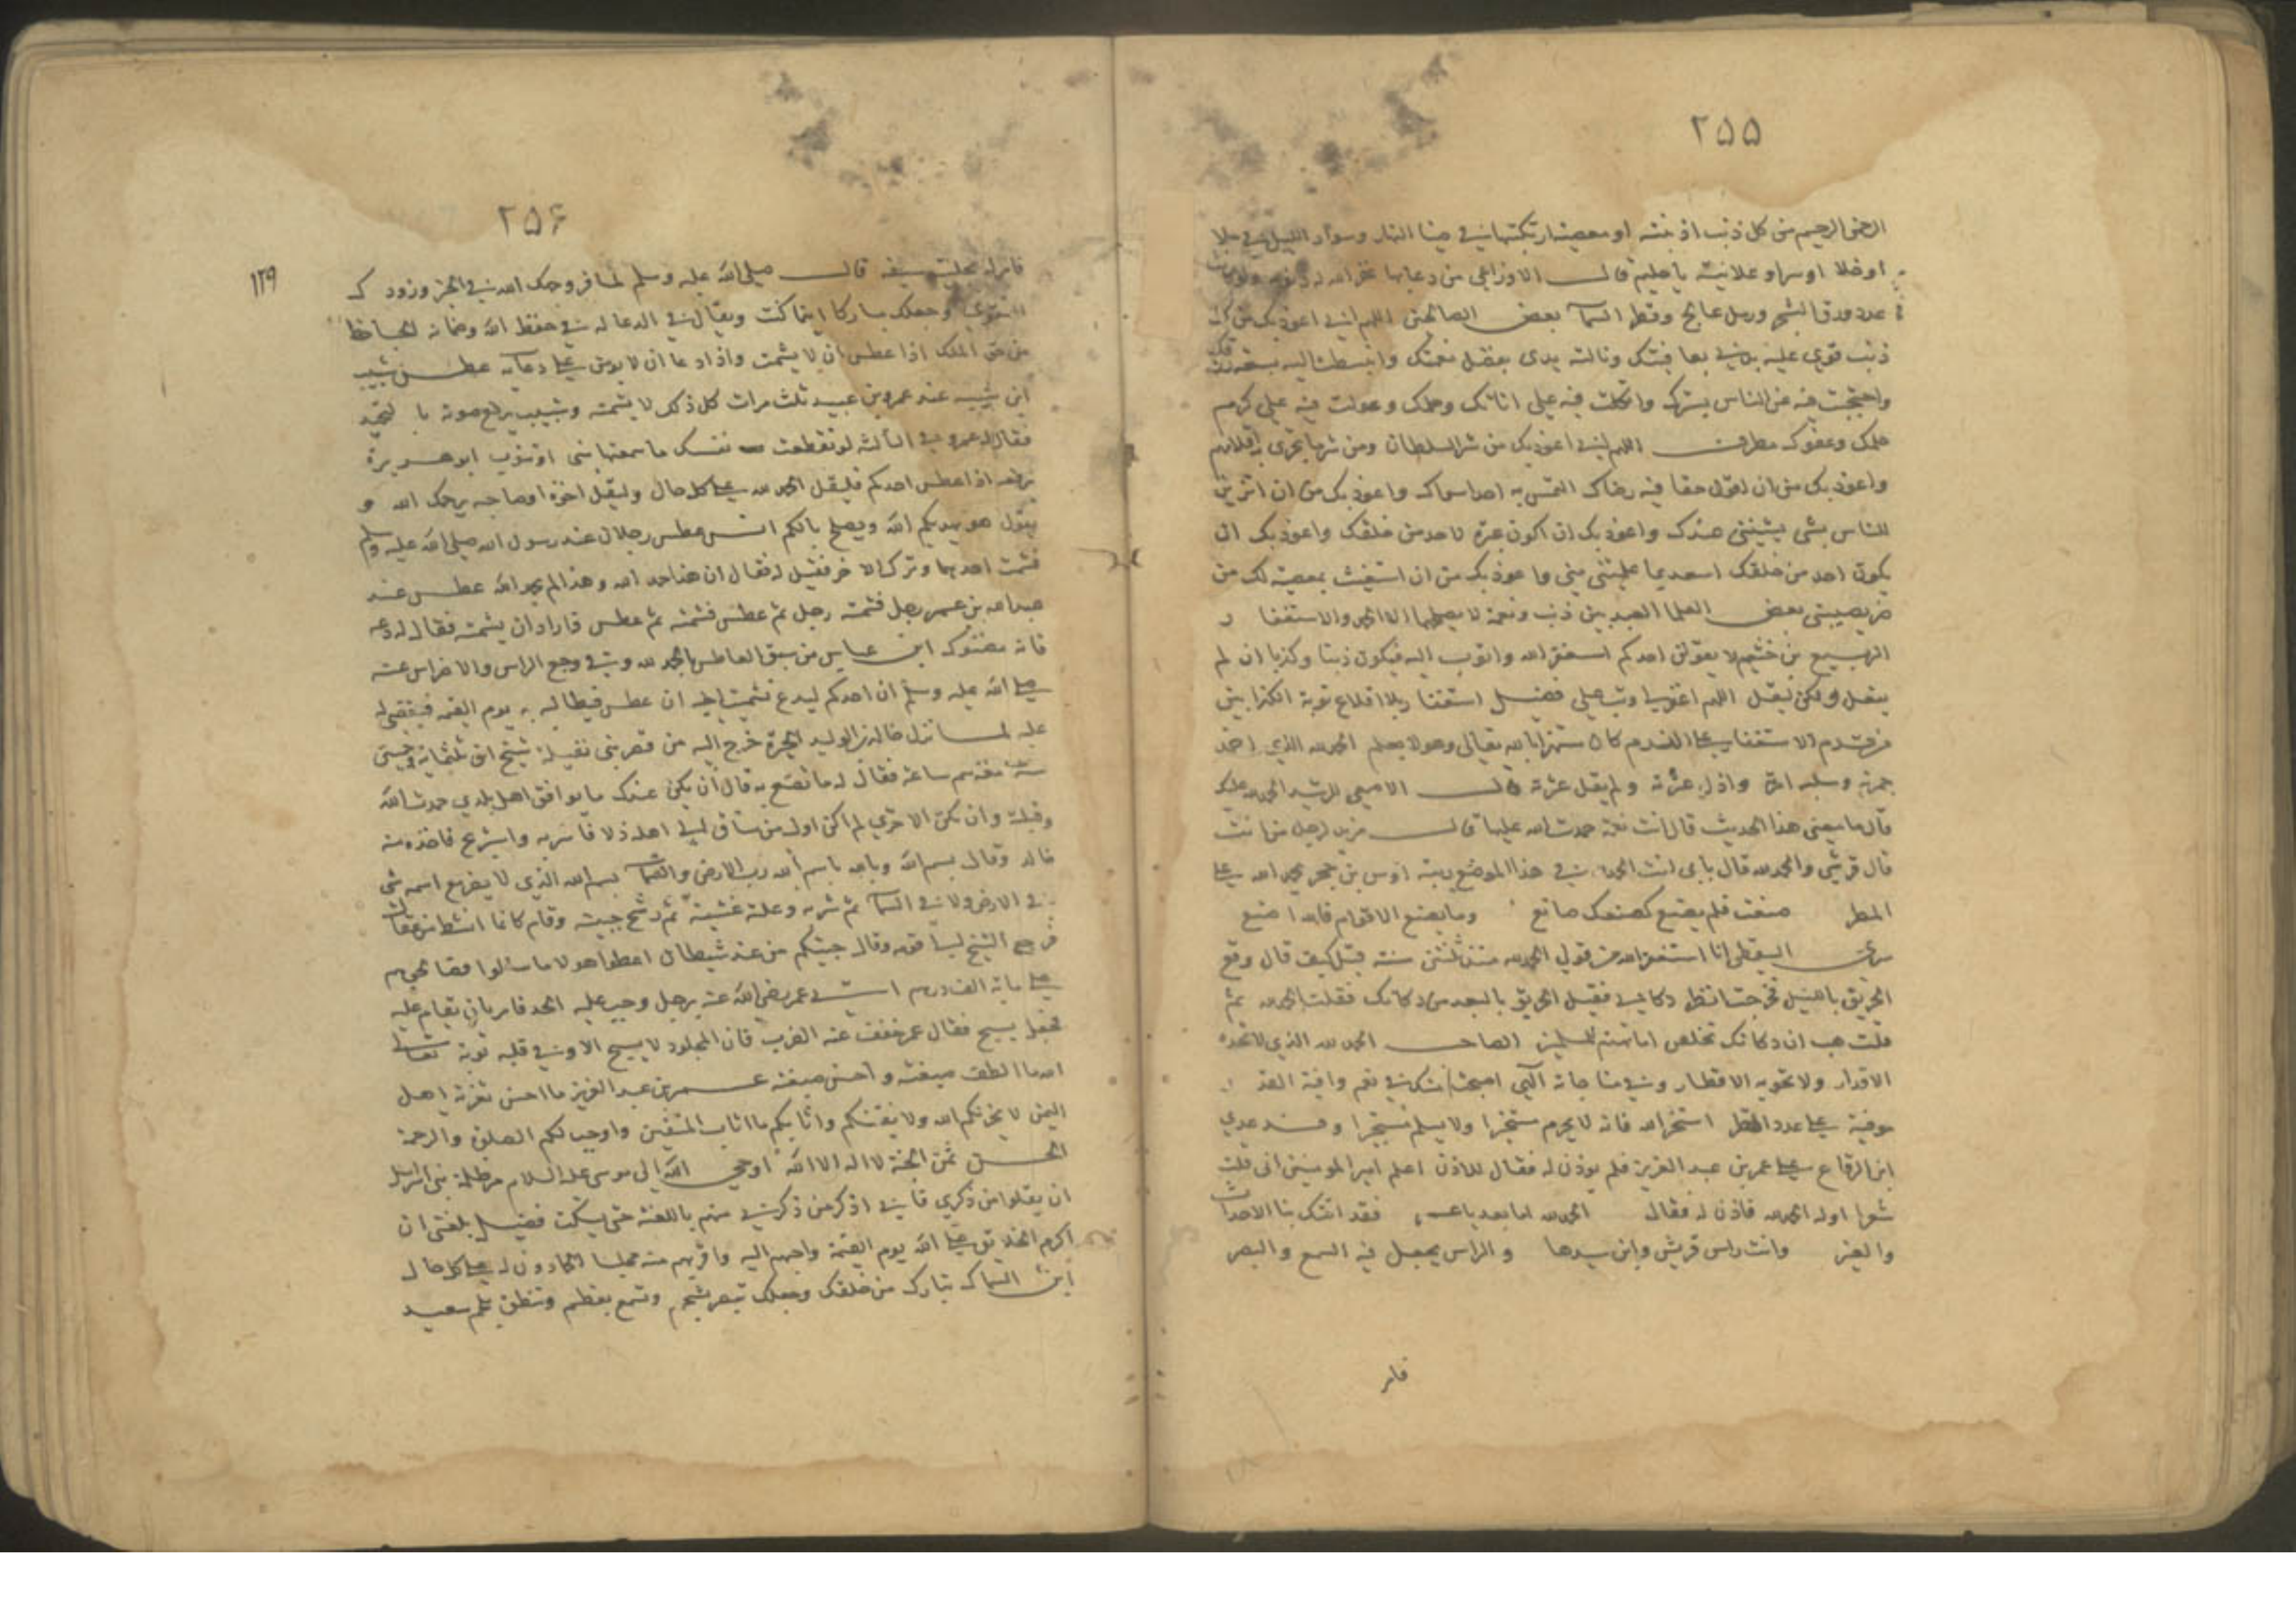 ٢٥٥
الرحمن الرحيم من كل ذنب اذنبته او معصية ارتكبتها في ضيا النهار وسواد الليل في ملا
او خلا او سرا وعلانية يا حليم قال الاوزاعي من دعا بها غفر الله له ذنوبه ولو كانت
عدد ورق الشجر ورمل عالج وقطر السما بعض الصالحين اللهم اني اعوذ بك من كل
ذنب قوي عليه بدني بعافيتك ونالته يدى بفضل نعمتك وانبسطت اليه بسعة رزقك
واحتجبت فيه عن الناس بسترك واتكلت فيه على اناتك وحلمك وعولت فيه على كرم
حلمك وعفوك مطرف اللهم اني اعوذ بك من شر السلطان ومن شر ما تجرى به اقلامهم
واعوذ بك من ان اقول حقا فيه رضاك التمس به احدا سواك واعوذ بك من ان اتزين
للناس بشى يشينني عندك واعوذ بك ان اكون عبرة لاحد من خلقك واعوذ بك ان
يكون احد من خلقك اسعد بما علمتني مني واعوذ بك من ان استغيث بمعصية لك من
ضر يصيبني بعض العلما العبد بين ذنب ونعمة لا يصلحهما الا الحمد والاستغفار
الربيع بن خثيم لا يقولن احدكم استغفر الله واتوب اليه فيكون ذنبا وكذبا ان لم
يفعل ولكن ليقل اللهم اغفر لي وتب علي فضيل استغفار بلا اقلاع توبة الكذابين
من قدم الاستغفار على الندم كان مستهزئا بالله تعالى وهو لا يعلم الحمد لله الذي اخمد
جمرته وسلبه امرته واذل عزته ولم يقل عثرته قال الاصمعي للرشيد الحمد لله عليك
قال ما معنى هذا الحديث قال انت نعمة حمدت الله عليها قال مزيد لرجل ممن انت
قال قرشي والحمد لله قال بابى انت الحمد في هذا الموضع ريبة اوس بن حجر بحمد الله على
المطر صنعت فلم يصنع كصنعك صانع وما يصنع الاقوام فالله اصنع
سري السقطي انا استغفر الله من قولي الحمد لله منذ ثلثين سنة قيل كيف قال وقع
الحريق بالليل فخرجت انظر دكاني فقيل الحريق بالبعد من دكانك فقلت الحمد لله ثم
قلت هب ان دكانك تخلص اما تهتم للمسلمين الصاحب الحمد لله الذي لا تحده
الاقدار ولا تحويه الاقطار وفي مناجاته الهي اصبحت منك في نعم وافية العدد
موفية على عدد القطر استخر الله فانه لا يحرم مستخيرا ولا يسلم مستجيرا وفد عدي
ابن الرقاع على عمر بن عبد العزيز فلم يوذن له فقال للاذن اعلم امير المومنين انى قلت
شعرا اوله الحمد لله فاذن له فقال الحمد لله اما بعد يا عمر فقد اتتك بنا الاحداث
والغير وانت راس قريش وابن سيدها والراس يجعل فيه السمع والبصر
فامر
٢٥٦
١٢٩
فامر له بحلية سيفه قال صلى الله عليه وسلم لمسافر وجهك الله في الخير وزودك
التقوى وجعلك مباركا اينما كنت ويقال في الدعا له في حفظ الله وضمانه الجاحظ
من حق الملك اذا عطس ان لا يشمت واذا دعا ان لا يومن على دعايه عطس شبيب
ابن شيبه عند عمرو بن عبيد ثلث مرات كل ذلك لا يشمته وشبيب يرفع صوته بالتحميد
فقال له عمرو في الثالثة لو تقطعت نفسك ما سمعتها مني او تتوب ابو هريرة
يرفعه اذا عطس احدكم فليقل الحمد لله على كل حال وليقل اخوه او صاحبه يرحمك الله و
يقول هو يهديكم الله ويصلح بالكم انس عطس رجلان عند رسول الله صلى الله عليه وسلم
فشمت احدهما وترك الاخر فقيل له فقال ان هذا حمد الله وهذا لم يحمد الله عطس عند
عبد الله بن عمر رجل فشمته رجل ثم عطس فشمته ثم عطس فاراد ان يشمته فقال له دعه
فانه مضنوك ابن عباس من سبق العاطس بالحمد لله وقي وجع الراس والاضراس عنه
صلى الله عليه وسلم ان احدكم ليدع تشميت اخيه ان عطس فيطالبه به يوم القيمه فيقضى له
عليه لما نزل خالد بن الوليد الحيرة خرج اليه من قصر بني نفيلة شيخ ابن ثلثماية وخمسين
سنة معه سم ساعة فقال له ما تصنع به قال ان يكن عندك ما يوافق اهل بلدي حمدت الله
وقبلته وان تكن الاخرى لم اكن اول من ساق الى اهله ذلا فاشربه واستريح فاخذه منه
خالد وقال بسم الله وبالله باسم الله رب الارض والسما بسم الله الذي لا يضر مع اسمه شى
في الارض ولا في السما ثم شربه وعلته غشية ثم رشح جبينه وقام كانما انشط من عقال
فرجع الشيخ الى قومه وقال جيتكم من عند شيطان اعطوا هولا ما سالوا فصالحوهم
على ماية الف درهم اتي عمر رضي الله عنه برجل وجب عليه الحد فامر بان يقام عليه
فجعل يسبح فقال عمر خفف عنه الضرب فان المجلود لا يسبح الا وفي قلبه توبة تعالى
الله ما الطف صنعته واحسن صنعته عمر بن عبد العزيز ما احسن تعزية اهل
اليمن لا يحزنكم الله ولا يفتنكم واثابكم ما اثاب المتقين واوجب لكم الصلوة والرحمة
الحسن ثمن الجنة لا اله الا الله اوحى الله الى موسى عليه السلام مر ظلمة بني اسرايل
ان يقلوا من ذكري فاني اذكر من ذكرني منهم باللعنة حتى يسكت فضيل بلغني ان
اكرم الخلايق على الله يوم القيمة واحبهم اليه واقربهم منه مجلسا الحمادون له على كل حال
ابن السماك تبارك من خلقك وجعلك تبصر بشحم وتسمع بعظم وتنطق بلحم سعيد